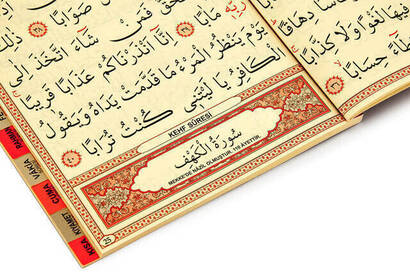 صَوَابًا
فَمَنْ شَاءَ اتَّخَذَ اِلٰى
مَاٰبًا ﴿٣٩﴾ اِنَّا اَنْذَرْنَاكُمْ عَذَابًا قَرِيبًا
يَوْمَ يَنْظُرُ الْمَرْءُ مَا قَدَّمَتْ يَدَاهُ وَيَقُولُ
الْكَافِرُ يَا لَيْتَنِي كُنْتُ تُرَابًا
دِهَاقًا
فِيهَا لَغْوًا وَلَا كِذَّابًا
حِسَابًا
KEHF SÛRESİ
سُورَةُ الْكَهْفِ
MEKKE'DE NÂZİL OLMUŞTUR, 110 ÂYETTİR.
25
RAHMAN
VAKIA
CUMA
KIYAMET
KISA